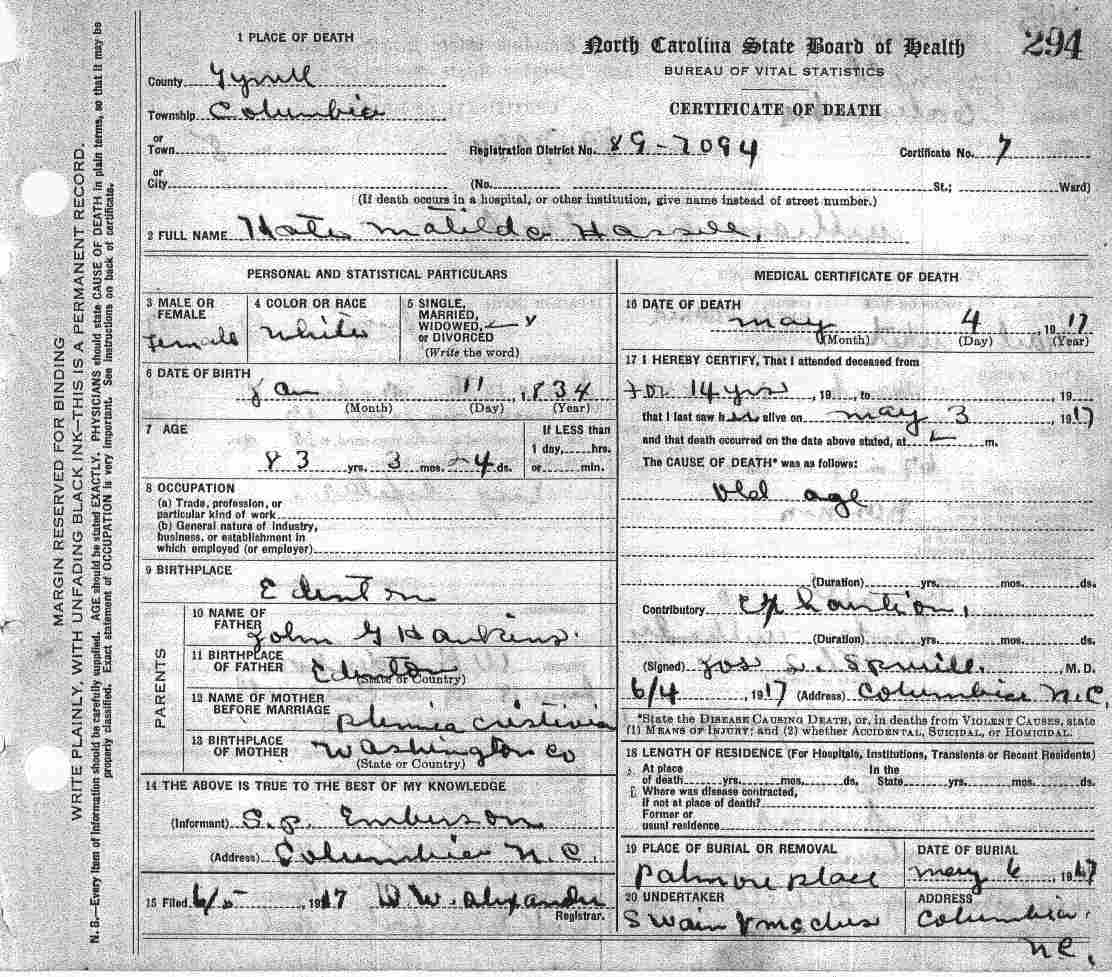 MARGIN RESERVED FOR BINDING
WRITE PLAINLY, WITH UNFADING BLACK INK—THIS IS A PERMANENT RECORD.
N. B.—Every item of information should be carefully supplied. AGE should be stated EXACTLY. PHYSICIANS should state CAUSE OF DEATH in plain terms, so that it may be
properly classified. Exact statement of OCCUPATION is very important. See instructions on back of certificate.
1 PLACE OF DEATH
North Carolina State Board of Health
294
BUREAU OF VITAL STATISTICS
CERTIFICATE OF DEATH
County Tyrrell
Township Columbia
or
Town
Registration District No. 89-7094
Certificate No. 7
or
City
(No. St.; Ward)
(If death occurs in a hospital, or other institution, give name instead of street number.)
2 FULL NAME Matilda Hassell
PERSONAL AND STATISTICAL PARTICULARS
3 MALE OR FEMALE female
4 COLOR OR RACE White
5 SINGLE, MARRIED, WIDOWED, OR DIVORCED (Write the word)
6 DATE OF BIRTH
Jan 11, 1834
(Month) (Day) (Year)
7 AGE
83 yrs. 3 mos. 24 ds.
If LESS than 1 day, hrs. or min.
8 OCCUPATION
(a) Trade, profession, or
particular kind of work
(b) General nature of industry,
business, or establishment in
which employed (or employer)
9 BIRTHPLACE
Edenton
PARENTS
10 NAME OF FATHER John G Hankins
11 BIRTHPLACE OF FATHER Edenton
(State or Country)
12 NAME OF MOTHER BEFORE MARRIAGE
13 BIRTHPLACE OF MOTHER Washington Co
(State or Country)
14 THE ABOVE IS TRUE TO THE BEST OF MY KNOWLEDGE
(Informant) S. P. Emberson
(Address) Columbia N.C.
15 Filed 6/5, 1917 W. W. Alexander
Registrar.
MEDICAL CERTIFICATE OF DEATH
16 DATE OF DEATH
may 4, 1917
(Month) (Day) (Year)
17 I HEREBY CERTIFY, That I attended deceased from
For 14 yrs, 19 , to , 19
that I last saw her alive on may 3, 1917
and that death occurred on the date above stated, at m.
The CAUSE OF DEATH* was as follows:
Old age
(Duration) yrs. mos. ds.
Contributory Exhaustion,
(Duration) yrs. mos. ds.
(Signed) Jos L. Spruill. M. D.
6/4, 1917 (Address) Columbia N.C.
*State the DISEASE CAUSING DEATH, or, in deaths from VIOLENT CAUSES, state
(1) MEANS OF INJURY; and (2) whether ACCIDENTAL, SUICIDAL, or HOMICIDAL.
18 LENGTH OF RESIDENCE (For Hospitals, Institutions, Transients or Recent Residents)
At place of death yrs. mos. ds. In the State yrs. mos. ds.
Where was disease contracted,
If not at place of death?
Former or
usual residence
19 PLACE OF BURIAL OR REMOVAL
Palmore place
DATE OF BURIAL
may 6, 1917
20 UNDERTAKER
Swain &
ADDRESS
Columbia
NC.